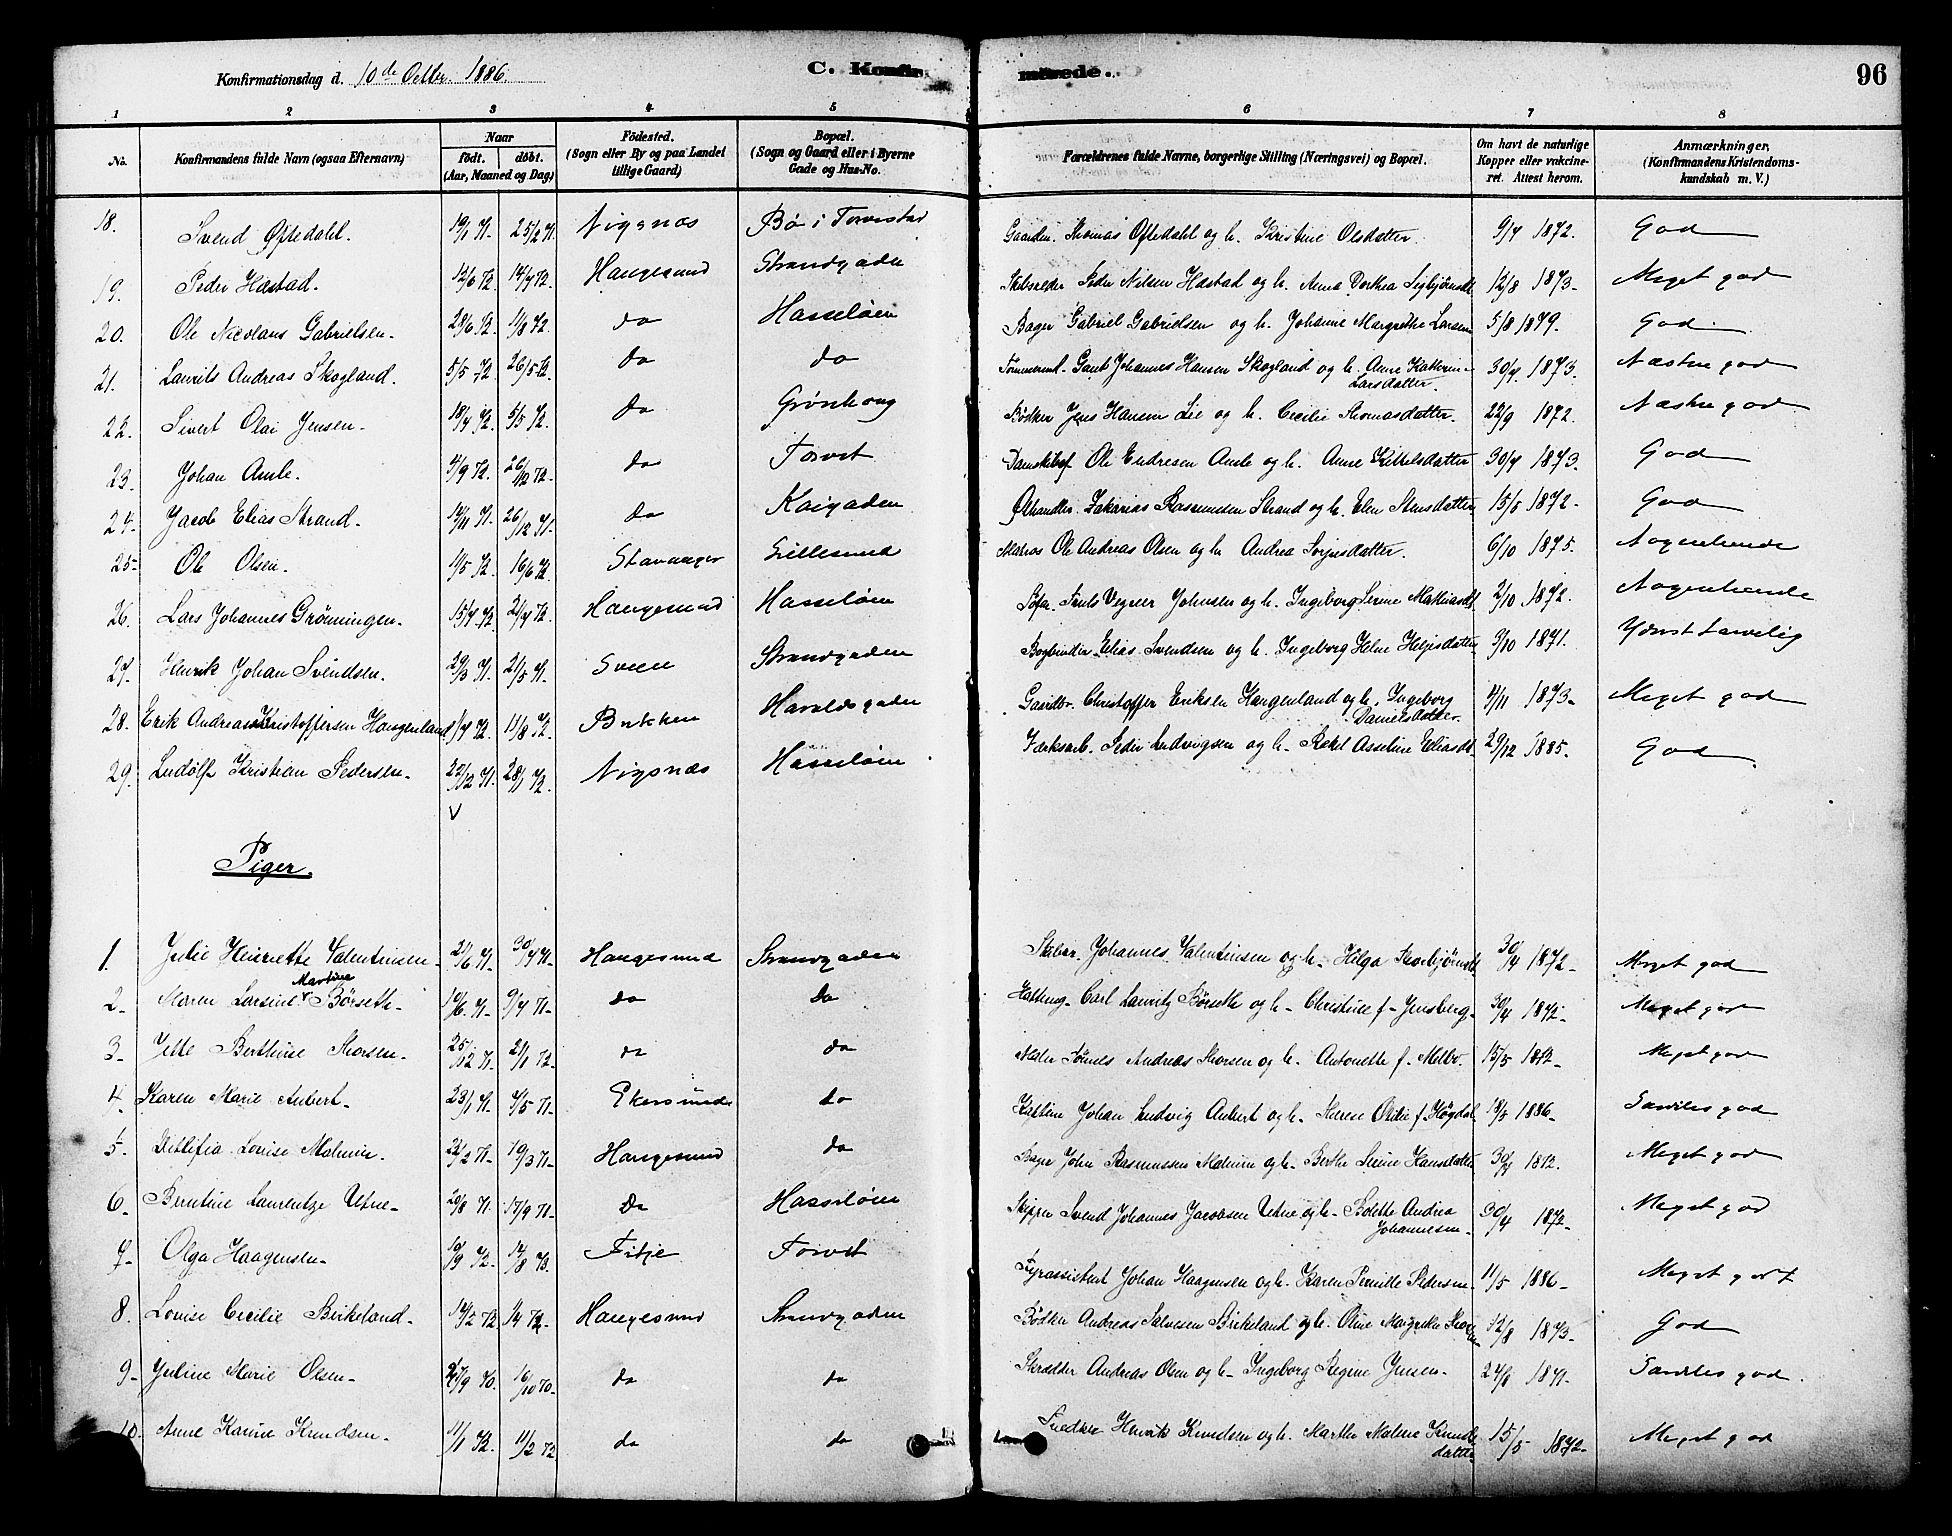 Konfirmationsdag d. 10de Octbr. 1886.
C. Konfirmerede.
96
1 2 3 4 5 6 7 8
No.
Konfirmandens fulde Navn (ogsaa Efternavn)
Naar
födt. döbt.
(Aar, Maaned og Dag)
Födested.
(Sogn eller By og paa Landet
tillige Gaard)
Bopæl.
(Sogn og Gaard eller i Byerne
Gade og Hus-No.
Forældrenes fulde Navne, borgerlige Stilling (Næringsvei) og Bopæl.
Om havt de naturlige
Kopper eller vakcine-
ret. Attest herom.
Anmærkninger,
(Konfirmandens Kristendoms-
kundskab m. V.)
18. Svend Oftedahl. 19/1 71. 25/2 71. Vigsnæs Bø i Torvestad Thomas Oftedahl og h. Kristine Olsdatter. 9/7 1872. God
19. Peder Hastad. 12/6 72. 14/7 72. Haugesund Strandgaden Skibsreder Peder Nilsen Hastad og h. Anna Dorthea 12/8 1873- Meget god
20. Ole Nicolaus Gabrielsen- 28/6 72. 11/8 72. do Hasseløen Bager Gabriel Gabrielsen og h. Johanne Margrethe Larsen 5/8 1879. God
21. Laurits Andreas Skogland. 5/5 72. 26/5 72. do do Tømmermd. Gaut Johannes Hansen Skogland og h. Anne Kathrine
Larsdatter. 30/4. 1873. Næsten god
22. Sivert Olai Jensen- 18/4 72. 5/5 72. do Grønhaug Bødker Jens Hansen Lie og h. Cecilie Thomasdatter. 22/9 1872. Næsten god
23. Johan Amle. 4/9 72. 26/12 72. do Torvet Ole Endresen Amle og h. Anne Kittelsdatter 30/4 1873. God
24. Jacob Elias Strand- 14/11 71. 26/12 71. do Kaigaden Ølhandler. Zakarias Rasmussen Strand og h. Elen 15/5 1872- God
25- Ole Olsen. 1/5 72. 16/6 72. Stavanger Lillesund Matros Ole Andreas Olsen og h. Andrea 6/10 1875. Nogenlunde
26. Lars Johannes Grönningen- 15/7 72. 21/7 72. Haugesund Hasseløen og h. Ingeborg Serine 2/10 1872. Nogenlunde
27. Henrik Johan Svendsen. 29/3 71. 21/5 71. Sveen Strandgaden Bogbinder Elias Svendsen og h. Ingeborg Helene 3/10 1871. Yderst tarvelig
28. Erik Andreas Kristoffersen Haugenland 1/7 72. 11/8 72. Bukken Haraldsgaden Gaardbr. Christoffer Eriksen Haugenland og h. Ingeborg
Danielsdatter. 4/11 1873- Meget god
29. Ludolf Kristian Pedersen- 22/12 71. 28/1 72. Vigsnæs Hasseløen Værksarb. Peder Ludvigsen og h. Rakel Asseline 29/12 1885. God
V
Piger.
1. Julie Henriette Valentinsen- 21/6 71- 30/7 71- Haugesund Strandgaden Johannes Valentinsen og h. Helga 30/4 1872- Meget god
2- Maren Larsine Martine Börseth- 10/6. 71- 9/7 71- do do Carl Lauritz Börseth og h- Christine f- Jensberg- 30/4 1872- Meget god
3- Jette Berthine Thorsen- 25/12 71- 21/1 72- do do Andreas Thorsen og h. Antonette f- Melbo. 15/5 1872- Meget god
4. Karen Marie Aubert- 23/1 71- 7/5 71- Ekersund do Kaptein Johan Ludvig Aubert og h- 18/5 1886- Særdeles god
5- Detlefia Lovise Malmin- 22/2 71- 19/3 71- Haugesund do Bager John Rasmussen Malmin og h- Berthe Serine Hansdatter 30/4 1872. Meget god
6- Berntine Laurentze Utne- 20/8 71. 17/9 71- do Hasseløen Skipper Svend Johannes Jacobsen Utne og h- Bolette Andrea
Johannesen- 30/4 1872- Meget god
7- Olga Haagensen- 10/9 72- 17/8 73. Fitje Torvet Fyrassistent Johan Haagensen og h. Karen Pernille Pedersen 11/5 1886- Meget godt
8. Louise Cecilie Birkeland- 14/2 72. 1/4 72- Haugesund Strandgaden Bödker Andreas Salvesen Birkeland og h. Oline Margrethe 12/8 1873- God
9- Juline Marie Olsen- 27/9 70. 16/10 70- do do Skrædder Andreas Olsen og h- Ingeborg Regine Jensen- 24/8 1871- Særdeles god.
10. Anne Karine Knudsen- 11/1 72. 11/2 72 do do Snedker Henrik Knudsen og h. Marthe Malene Knuds
datter 15/5- 1872- Meget god